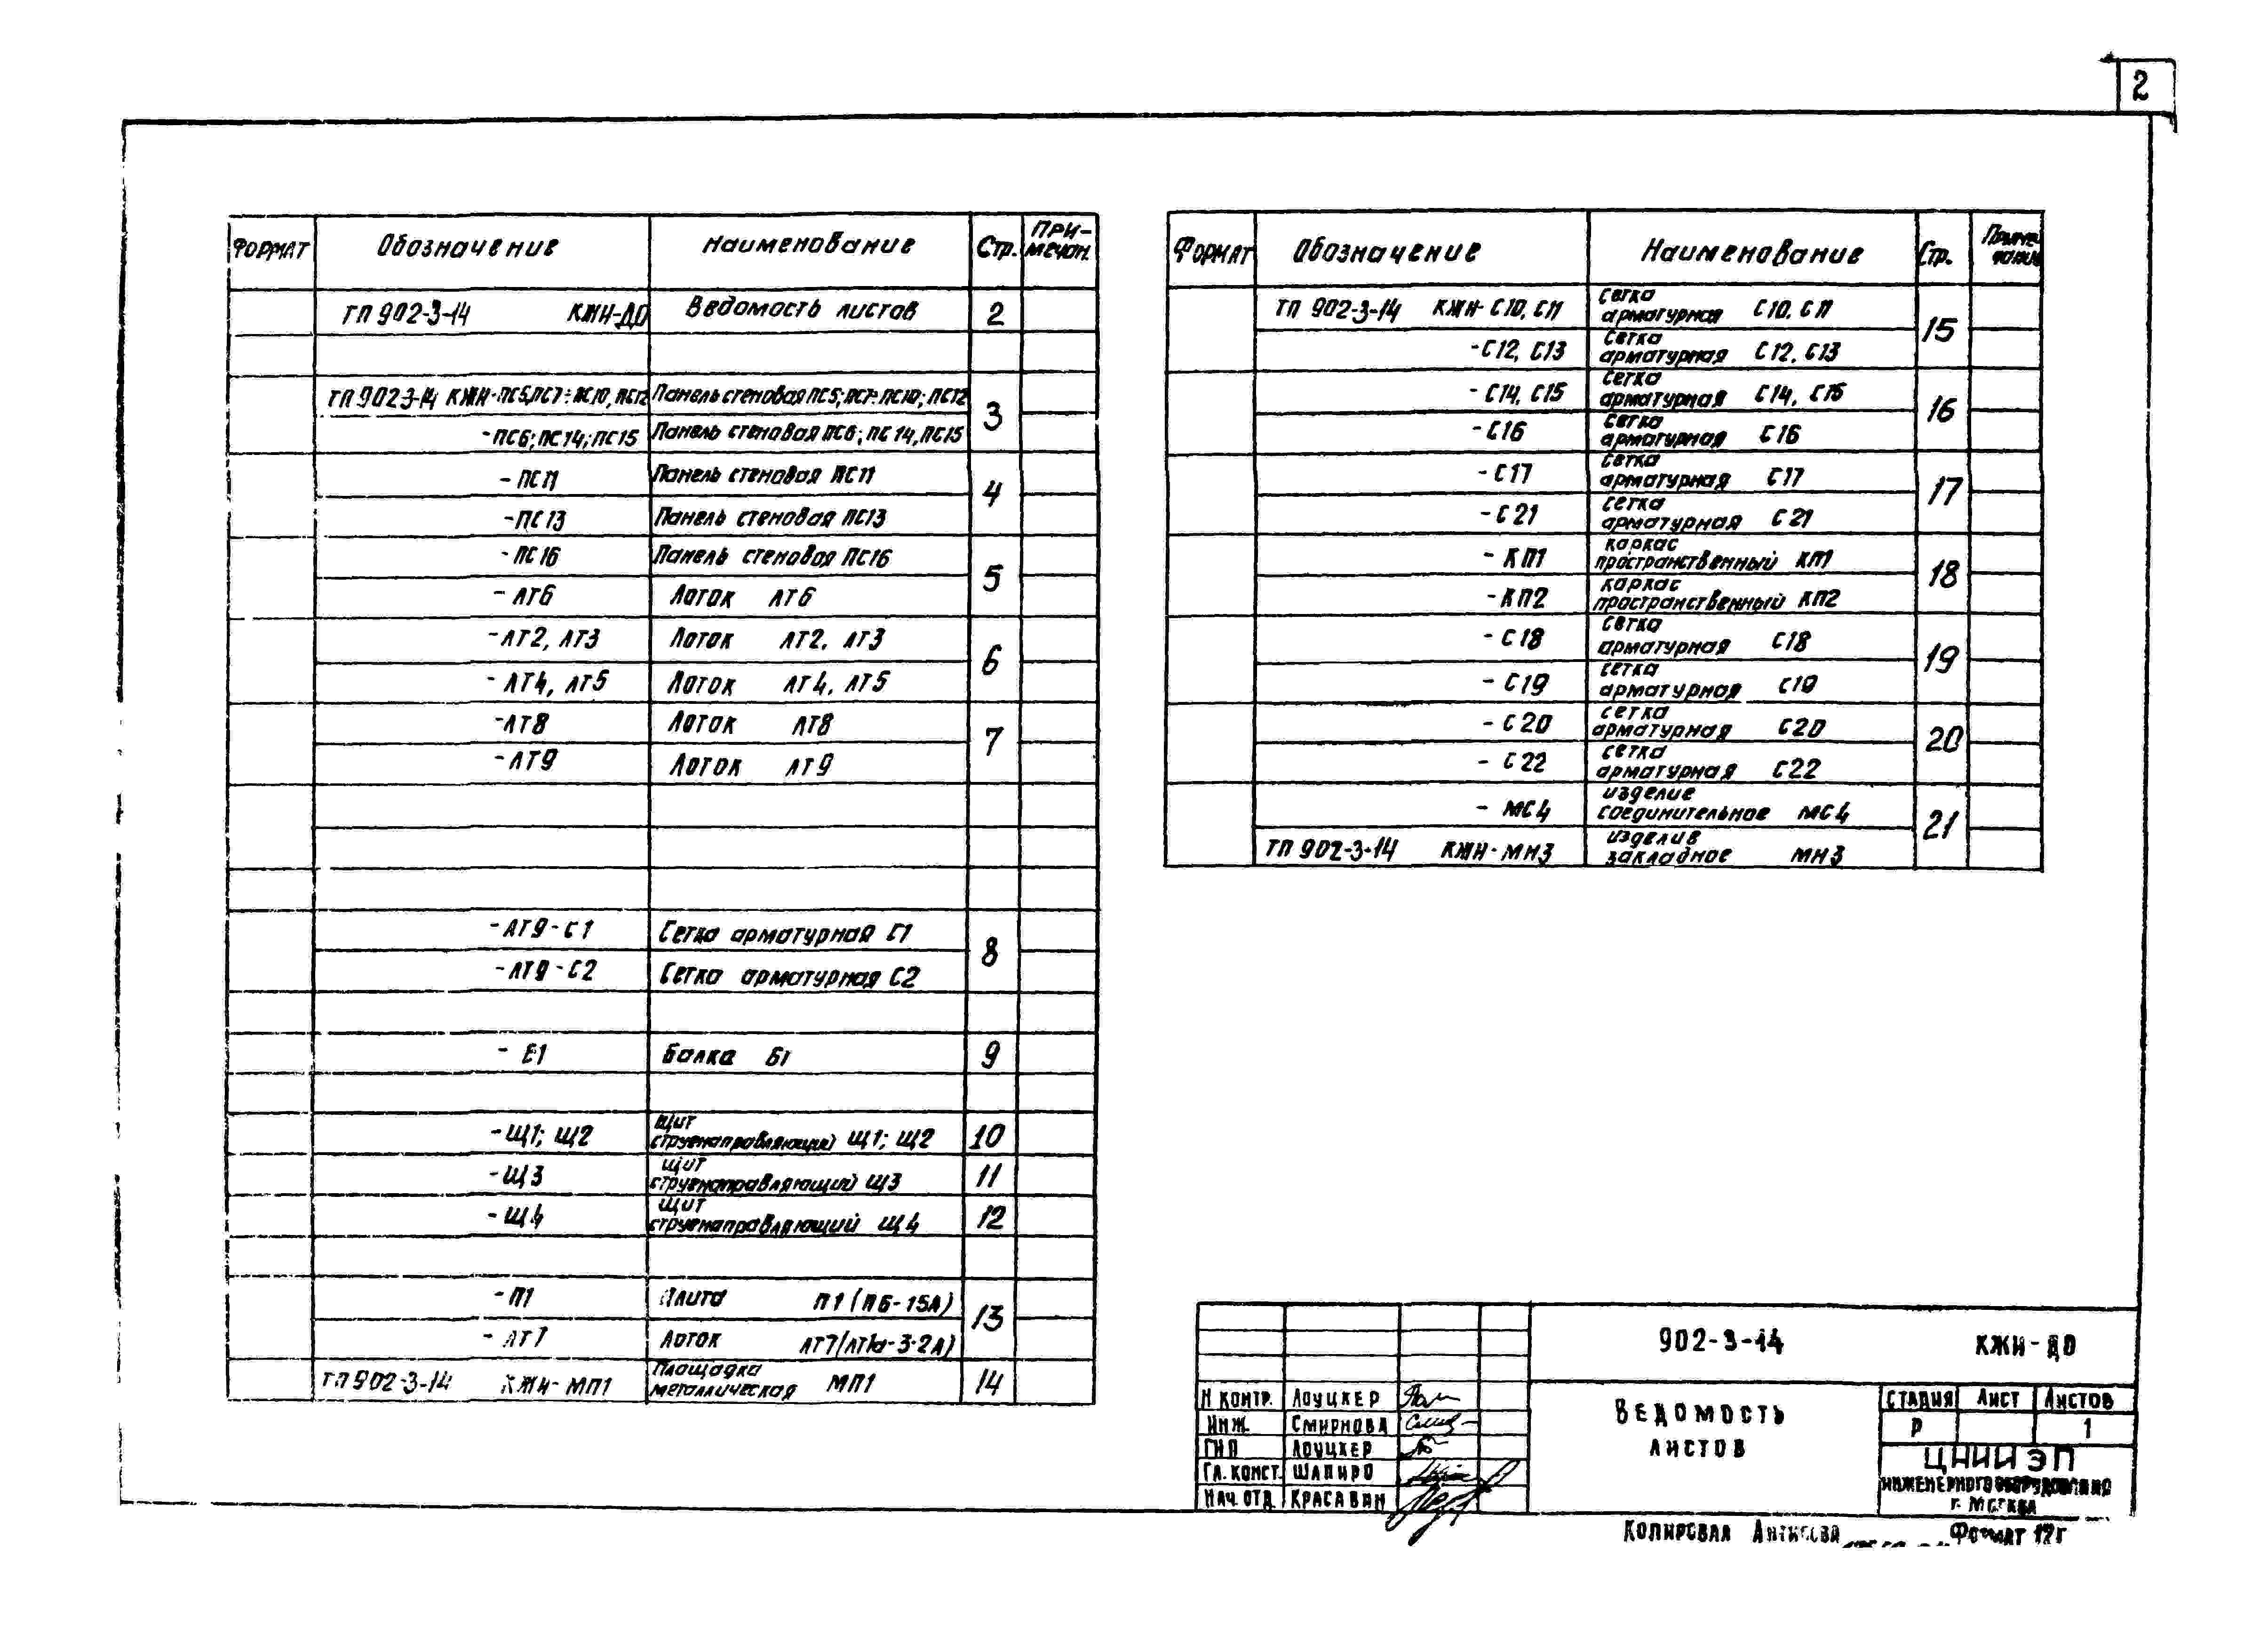 2
ФОРМАТ Обозначение Наименование Стр. ПРИ-МЕЧАН.
ТП 902-3-14 КЖИ-ДО Ведомость листов 2
ТП 902-3-14 КЖИ-ПС5,ПС7÷ПС10,ПС12 Панель стеновая ПС5; ПС7÷ПС10; ПС12 3
-ПС6; ПС14; ПС15 Панель стеновая ПС6; ПС14, ПС15
-ПС11 Панель стеновая ПС11 4
-ПС13 Панель стеновая ПС13
-ПС16 Панель стеновая ПС16 5
-ЛТ6 Лоток ЛТ6
-ЛТ2, ЛТ3 Лоток ЛТ2, ЛТ3 6
-ЛТ4, ЛТ5 Лоток ЛТ4, ЛТ5
-ЛТ8 Лоток ЛТ8 7
-ЛТ9 Лоток ЛТ9
-ЛТ9-С1 Сетка арматурная С1 8
-ЛТ9-С2 Сетка арматурная С2
-Б1 Балка Б1 9
-Щ1; Щ2 Щит струенаправляющий Щ1; Щ2 10
-Щ3 Щит струенаправляющий Щ3 11
-Щ4 Щит струенаправляющий Щ4 12
-П1 Плита П1 (ПБ-15А) 13
-ЛТ7 Лоток ЛТ7
ТП 902-3-14 КЖИ-МП1 Площадка металлическая МП1 14
ФОРМАТ Обозначение Наименование Стр. Примечание
ТП 902-3-14 КЖИ-С10, С11 Сетка арматурная С10, С11 15
-С12, С13 Сетка арматурная С12, С13
-С14, С15 Сетка арматурная С14, С15 16
-С16 Сетка арматурная С16
-С17 Сетка арматурная С17 17
-С21 Сетка арматурная С21
-КП1 каркас пространственный КП1 18
-КП2 каркас пространственный КП2
-С18 сетка арматурная С18 19
-С19 сетка арматурная С19
-С20 сетка арматурная С20 20
-С22 сетка арматурная С22
-МС4 изделие соединительное МС4 21
ТП 902-3-14 КЖИ-МН3 изделие закладное МН3
902-3-14 КЖИ-ДО
Н КОНТР. ЛОУЦКЕР
ИНЖ. СМИРНОВА
ГИП ЛОУЦКЕР
ГЛ. КОНСТ. ШАПИРО
НАЧ. ОТД КРАСАВИН
ВЕДОМОСТЬ
ЛИСТОВ
СТАДИЯ ЛИСТ ЛИСТОВ
Р 1
ЦНИИЭП
ИНЖЕНЕРНОГО ОБОРУДОВАНИЯ
г. МОСКВА
КОПИРОВАЛ ФОРМАТ 12Г